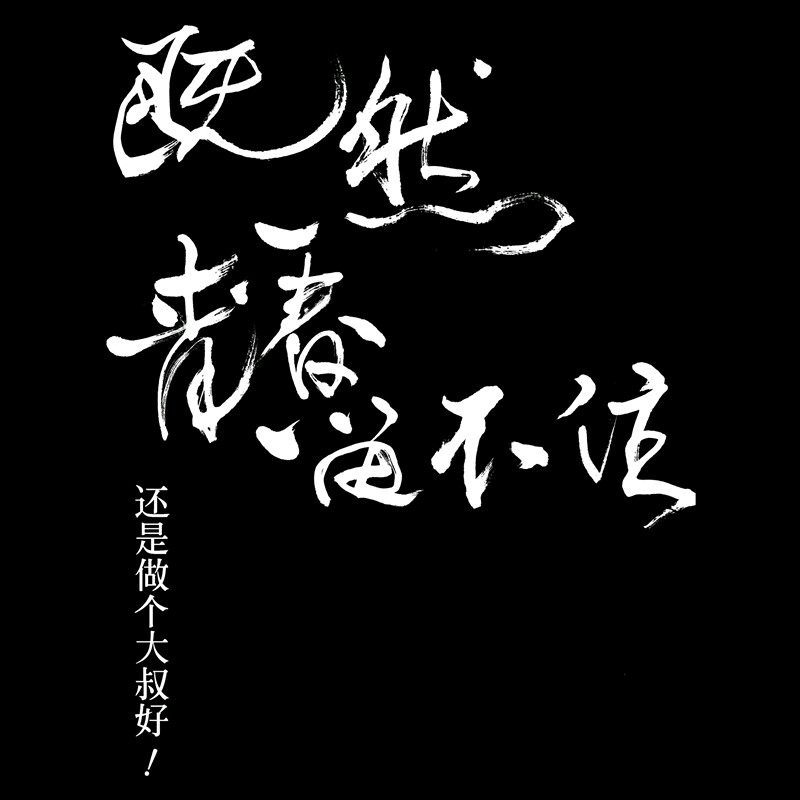 既然
青春
留不住
还是做个大叔好！